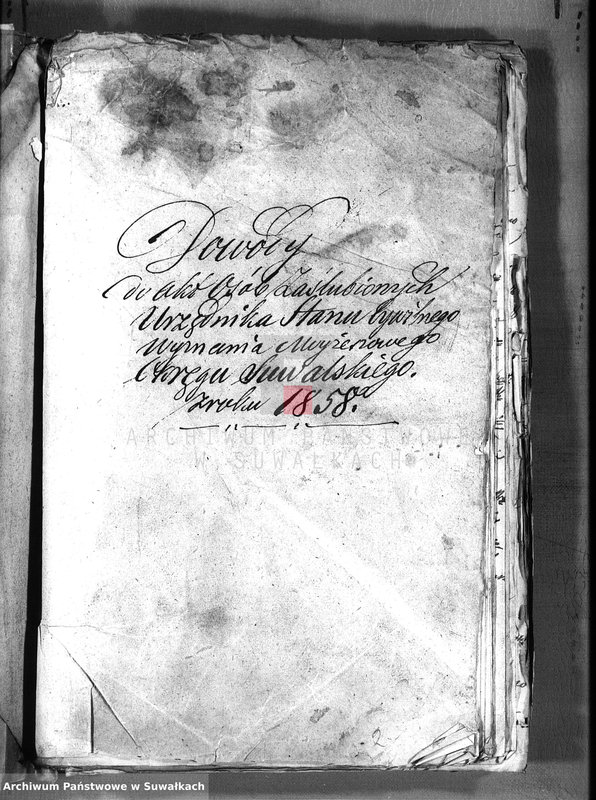 Dowody
do akt Osób Zaślubionych
Urzędnika Stanu Cywilnego
Wyznania Mojżeszowego
Okręgu Suwalskiego.
z roku 1858.
ARCHIWUM PAŃSTWOWE
W SUWAŁKACH
2
Archiwum Państwowe w Suwałkach